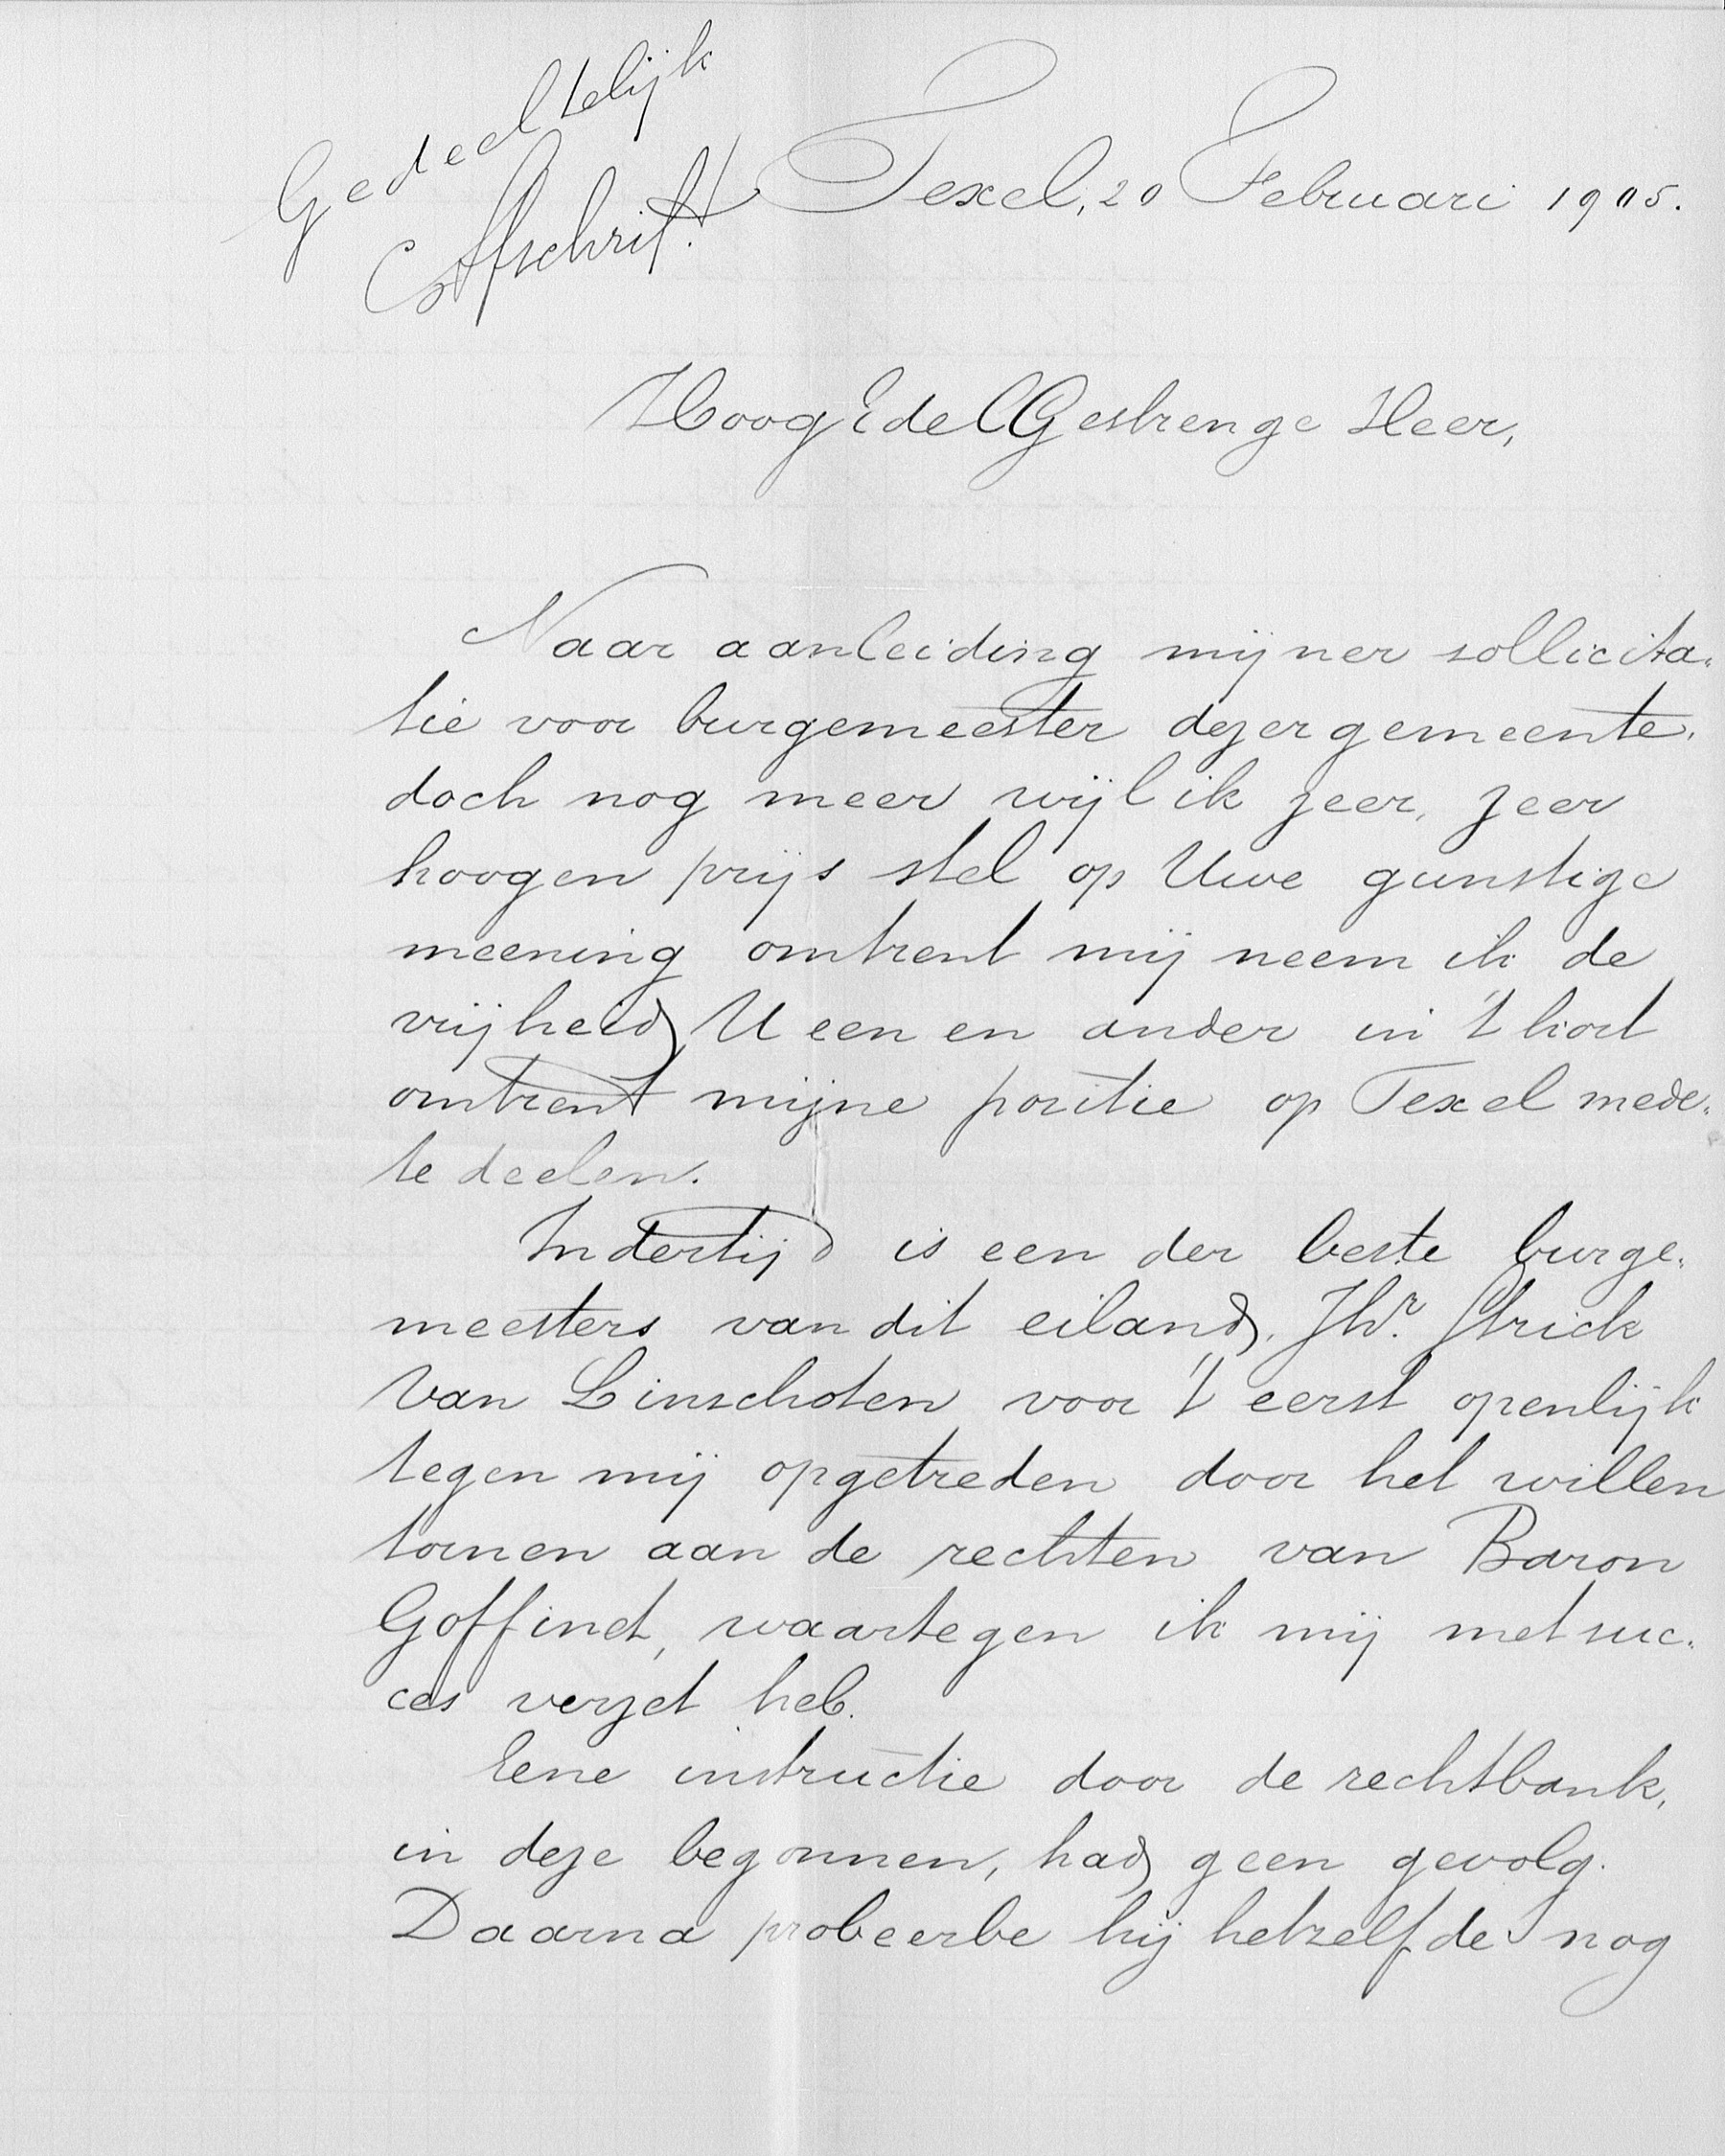 Gedeeltelijk
Afschrift.
Texel, 20 Februari 1905.
HoogEdelGestrenge Heer,
Naar aanleiding mijner sollicita-
tie voor burgemeester dezer gemeente,
doch nog meer wijl ik zeer, zeer
hoogen prijs stel op Uwe gunstige
meening omtrent mij neem ik de
vrijheid U een en ander in 't kort
omtrent mijne positie op Texel mede-
te deelen.
Indertijd is een der beste burge-
meesters van dit eiland, Jhr. Strick
van Linschoten voor 't eerst openlijk
tegen mij opgetreden door het willen
tornen aan de rechten van Baron
Goffinet, waartegen ik mij met suc-
ces verzet heb.
Eene instructie door de rechtbank,
in deze begonnen, had geen gevolg.
Daarna probeerbe hij hetzelfde nog